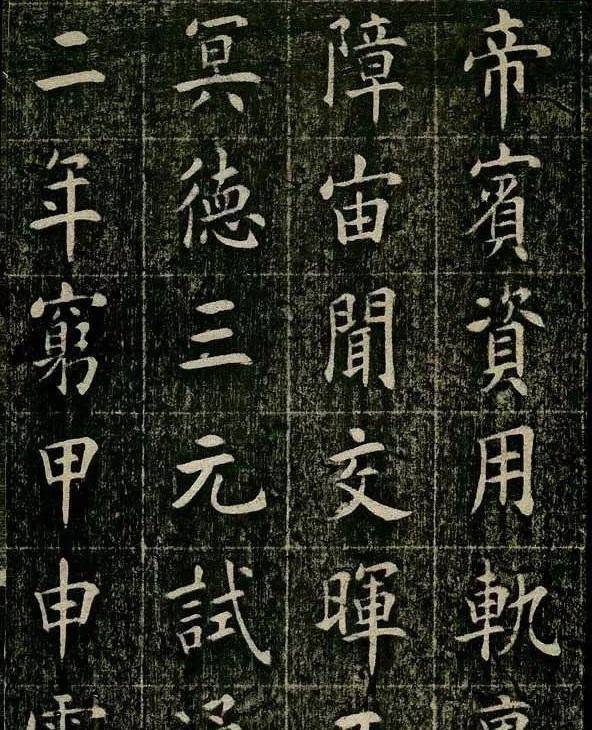 帝賓資用軌
障宙聞交暉
冥德三元試
二年窮甲申